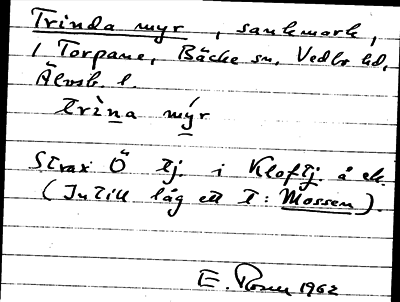 Trinda myr, sankmark,
i Torpane, Bäcke sn, Vedbo hd,
Älvsb. l.
trìna mýr
Strax Ö tj. i Kloftj. å ek.
(Intill låg ett t: Mossen).
E. Rosen 1962